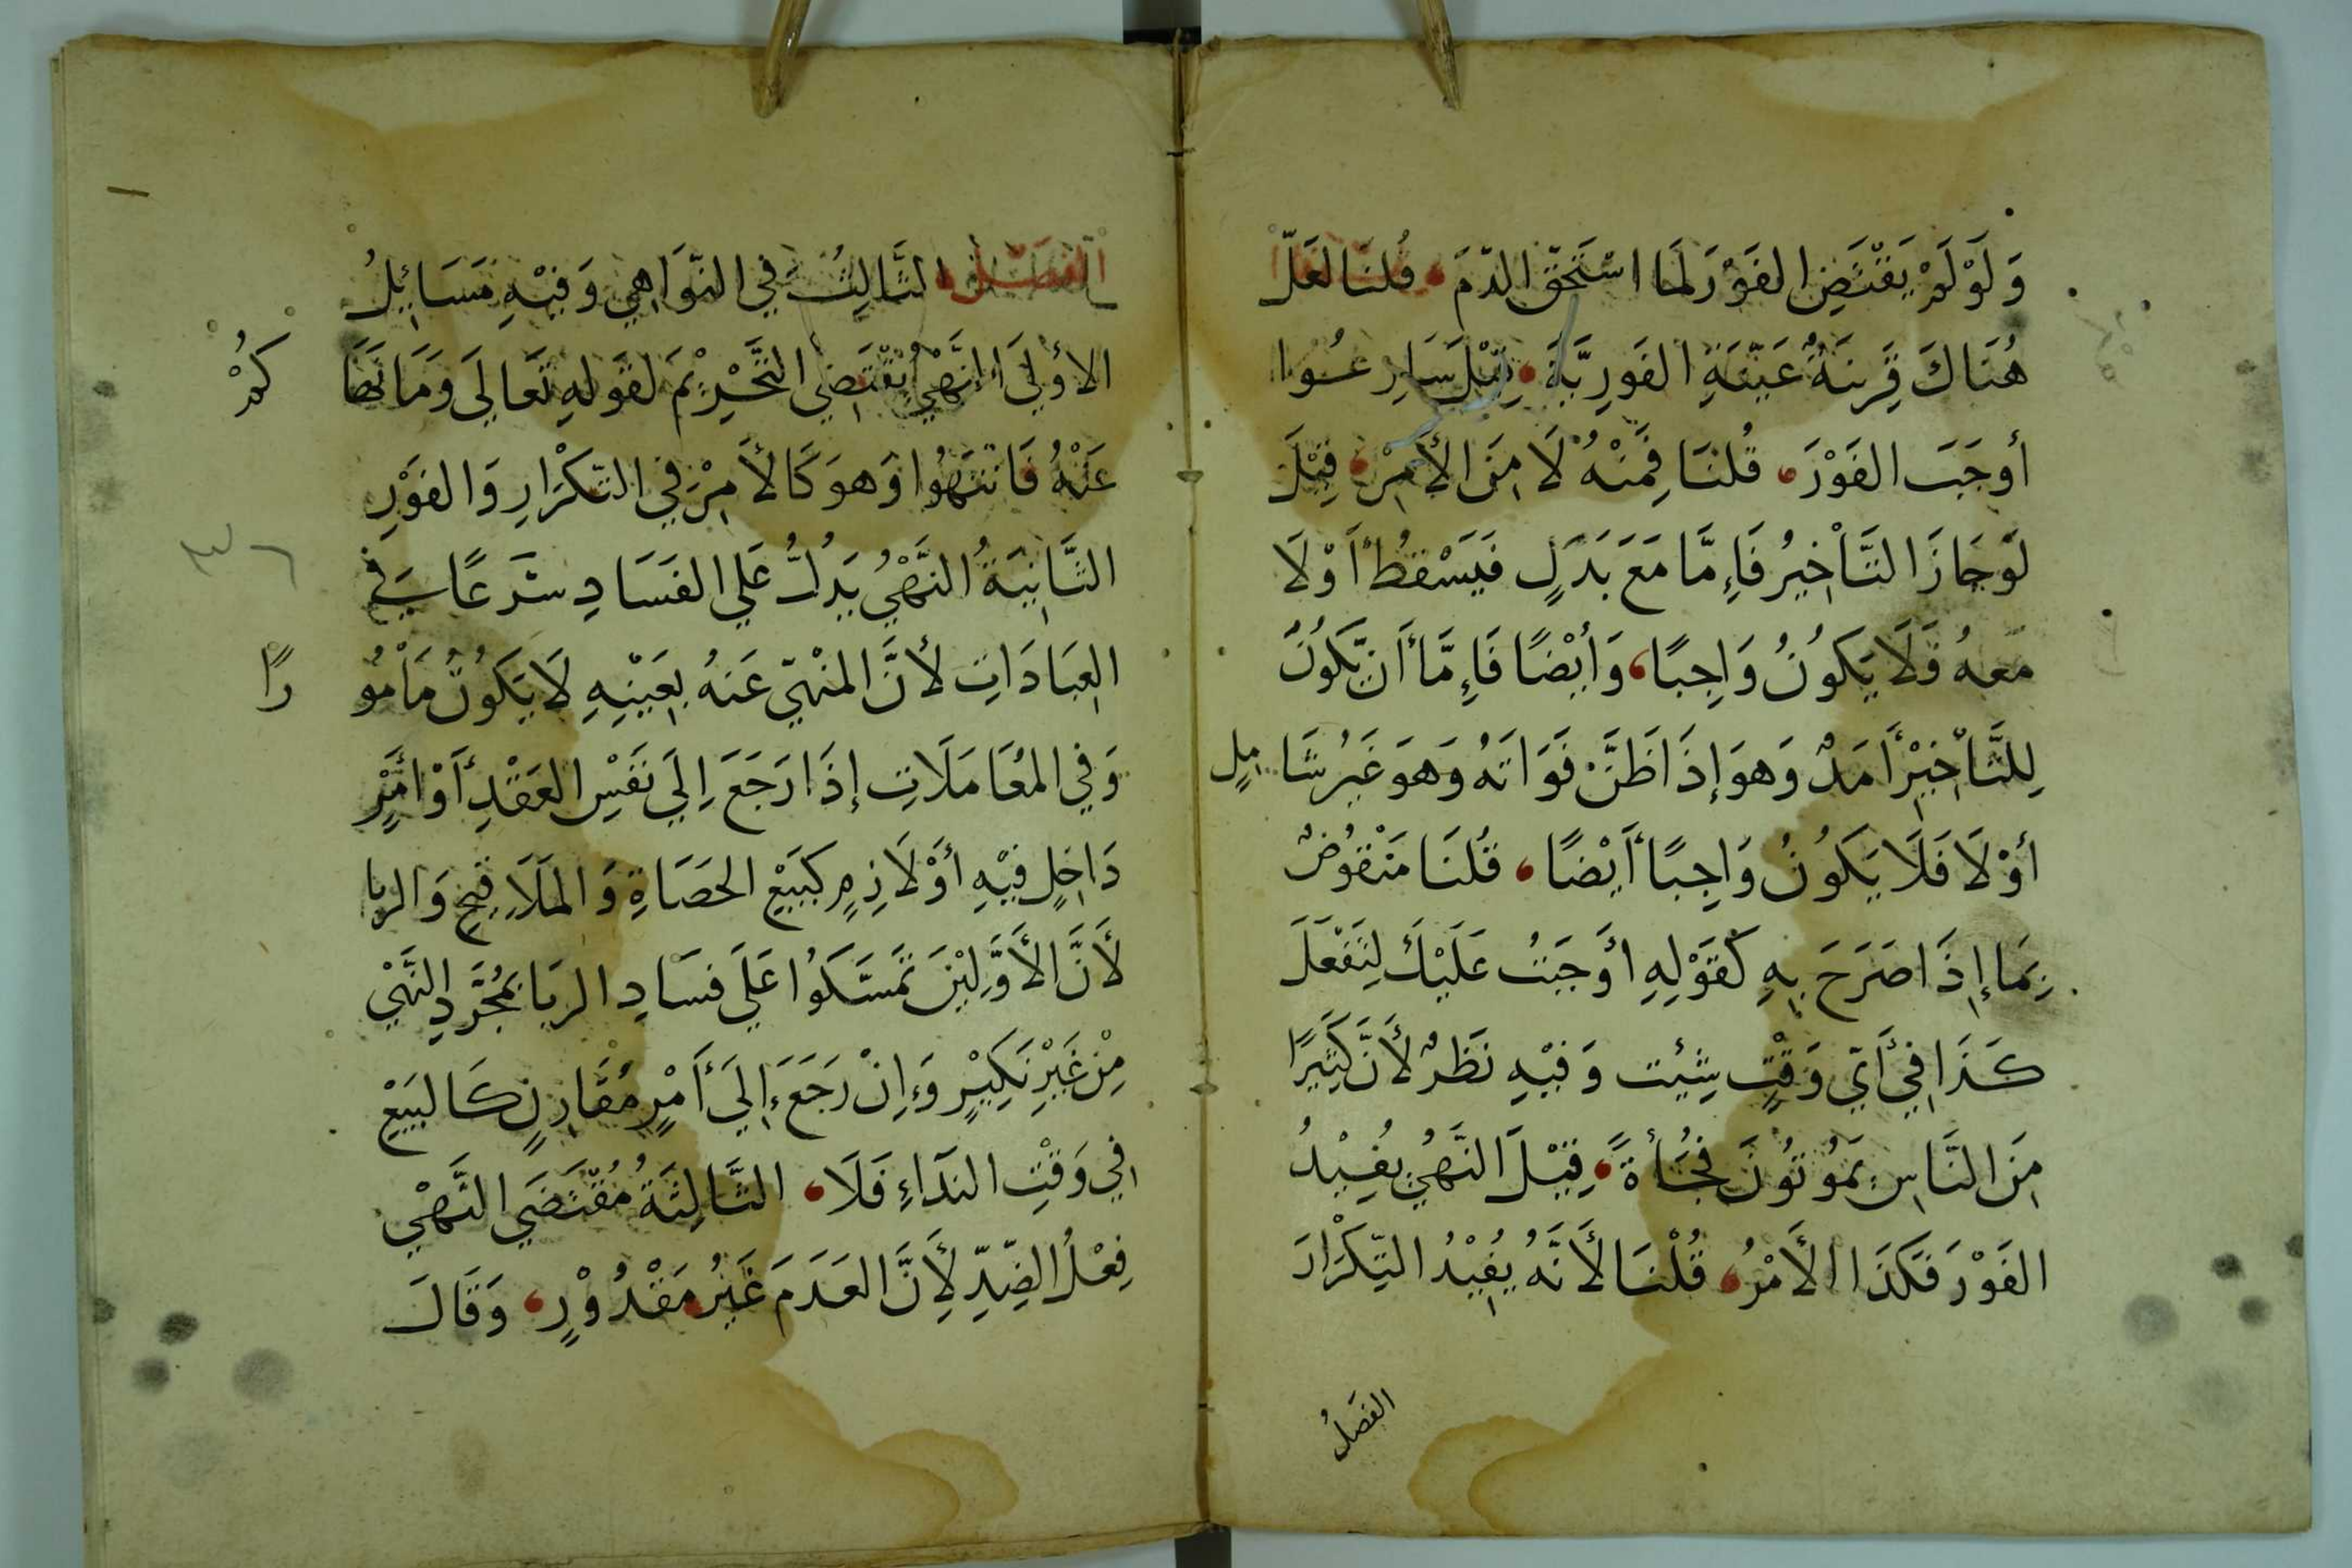 وَلَوْ لَمْ يَقْتَضِ الفَوْرَ لَمَا اسْتَحَقَّ الذّمَ، قُلنَا لَعَلّ
هُنَاكَ قَرِينَةٌ عَيَّنَةِ الفَورِيَّةَ، قِيْلَ سَارِعُوا
أوجَبَ الفَوْرَ، قُلنَا فَمِنْهُ لَا مِنَ الأَمِرْ، قِيْلَ
لَوجَازَ التَّأْخِيرُ فَإِمَّا مَعَ بَدَلٍ فَيَسْقُطُ أَوْلَا
مَعهُ فَلَا يَكُونُ وَاجِبًا، وَأيْضًا فَإِمَّا أَن يَّكُونَ
لِلتَّأْخِيْرِ أَمَدٌ وَهوَ إذَا ظَنَّ فَوَاتَهُ وَهوَ غَيرُ شَامِلٍ
أوْلَا فَلَا يَكُونُ وَاجِبًا أَيْضًا، قُلنَا مَنْقُوضٌ
بِمَا إِذَا صَرَحَ بِهِ كَقَوْلِهِ أوَجَبْتُ عَلَيْكَ لِتَفْعَلَ
كَذَا فِيْ أَيّ وَقْتٍ شِئت وَفيْهِ نَظَرٌ لأَنَّ كَثِيرًا
مِنَ النَّاسِ يَمُوتُونَ فُجْأةً، قِيْلَ النَّهْيُ يُفِيْدُ
الفَوْرَ فَكَذَا الأَمْرُ، قُلْنَا لأَنَّهُ يُفِيْدُ التِّكْرَارَ
الفَصْلُ
الفَصْلُ الثَّالِثُ فِي النَّوَاهِي وَفِيْهِ مَسَائِلُ
الأُوْلَى النَّهْيُ يَقْتَضِي التَّحْرِيْمَ لقَولِهِ تَعَالَى وَمَا نَهَاكُمْ
عَنْهُ فَانْتَهُوا وَهوَ كَالأَمِرْ فِي التّكْرَارِ وَالفَوْرِ
الثَّانِيَةُ النَّهْيُ يَدُلُّ عَلَى الفَسَادِ شَرعًا فِي
العِبَادَاتِ لأَنَّ المَنْهيّ عَنهُ بِعَيْنِهِ لَا يَكُونُ مَأْمُورًا
وَفِي المُعَامَلَاتِ إذَا رَجَعَ إِلَى نَفْسِ العَقْدِ أَوْ أَمْرٍ
دَاخِلٍ فِيْهِ أوْ لَازِمٍ كَبَيْعِ الحَصَاةِ وَالمَلَاقِيحِ وَالربا
لأَنَّ الأَوَّلِيْنَ تَمَسَّكَوُا عَلَى فسَادِ الربَا بمُجَرَّدِ النَّهْي
مِنْ غَيْرِ نَكِيْرٍ وَإِنْ رَجَعَ إِلَىَ أَمْرٍ مُقَارِنٍ كَالبَيْعِ
فِي وَقْتِ النّدَاءِ فَلَا، الثَّالِثَةُ مُقْتَضَي النَّهْي
فِعْلُ الضِدِّ لِأَنَّ العَدَمَ غَيْرُ مَقْدُوْرٍ، وَقَالَ